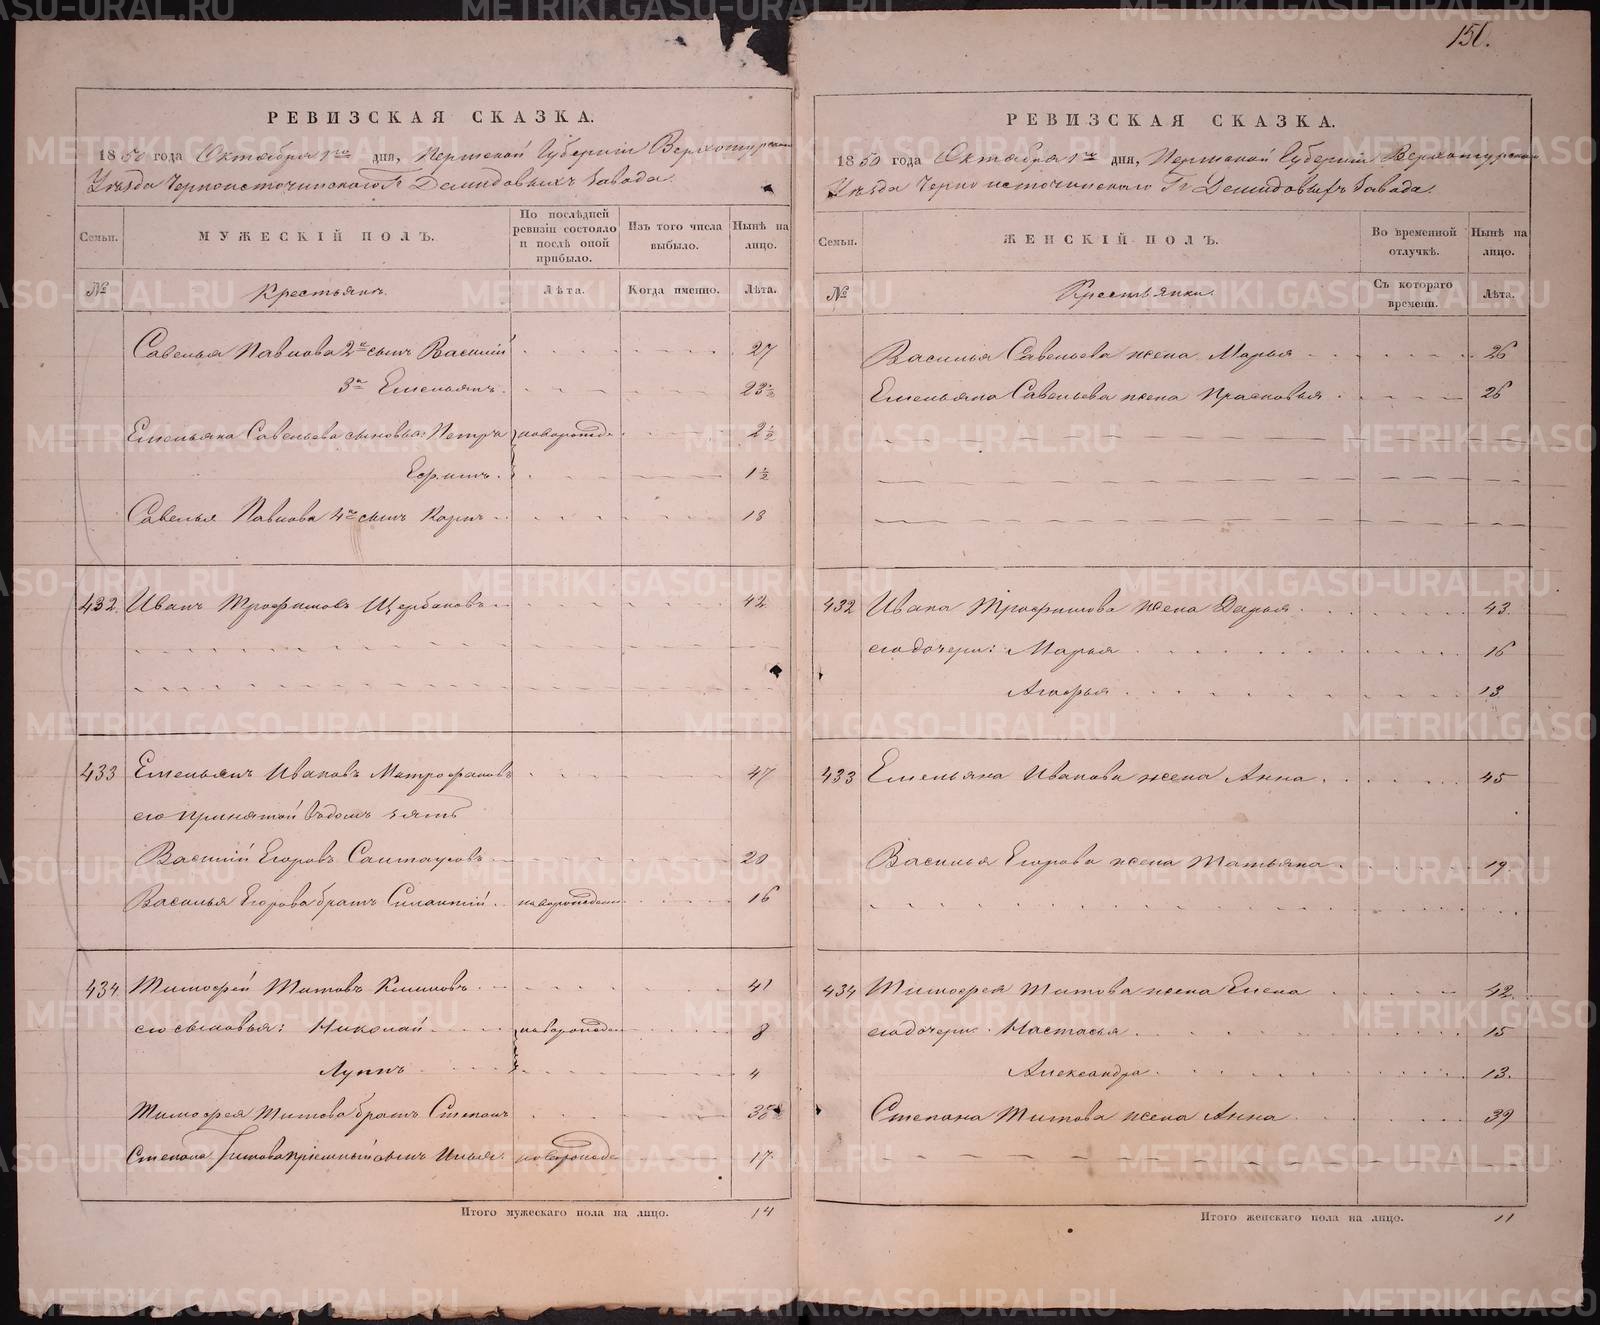 151.
РЕВИЗСКАЯ СКАЗКА.
1850 года Октября 1го дня, Пермской Губернiи Верхотурскаго
Уѣзда Черноисточинскаго Гг Демидовыхъ Завода.
Семьи. МУЖЕСКIЙ ПОЛЪ. По послѣдней ревизiи состояло и послѣ оной прибыло. Изъ того числа выбыло. Нынѣ на лицо.
№ Крестьянъ. Лѣта. Когда именно. Лѣта.
Савелья Павлова 2й сынъ Василiй 27
3й Емельянъ. 23½
Емельяна Савельева сыновья: Петръ новорожде. 2½
Ефимъ. 1½
Савелья Павлова 4й сынъ Карпъ 18
432. Иванъ Трофимовъ Щербаковъ 42
433 Емельянъ Ивановъ Митрофановъ 47
его принятой въ домъ зять
Василiй Егоровъ 20
Василья Егорова братъ Силантiй новорожден 16
434. Тимофей Титовъ Климовъ 41
его сыновья: Николай новорожден 8
Лупъ 4
Тимофея Титова братъ Степанъ 38
Степана Титова прiемный сынъ Илья новорожде 17
Итого мужескаго пола на лицо. 14
РЕВИЗСКАЯ СКАЗКА.
1850 года Октября 1го дня, Пермской Губернiи Верхотурскаго
Уѣзда Черноисточинскаго Гг Демидовыхъ Завода.
Семьи. ЖЕНСКIЙ ПОЛЪ. Во временной отлучкѣ. Нынѣ на лицо.
№ Крестьянки. Съ котораго времени. Лѣта.
Василья Савельева жена Марья 26
Емельяна Савельева жена Прасковья 26
432 Ивана Трофимова жена Дарья 43.
его дочери: Марья 16
Агафья 13
433 Емельяна Иванова жена Анна 45
Василья Егорова жена Татьяна 19
434 Тимофея Титова жена Елена 42
его дочери: Настасья 15
Александра 13.
Степана Титова жена Анна 39
Итого женскаго пола на лицо. 11
METRIKI.GASO-URAL.RU